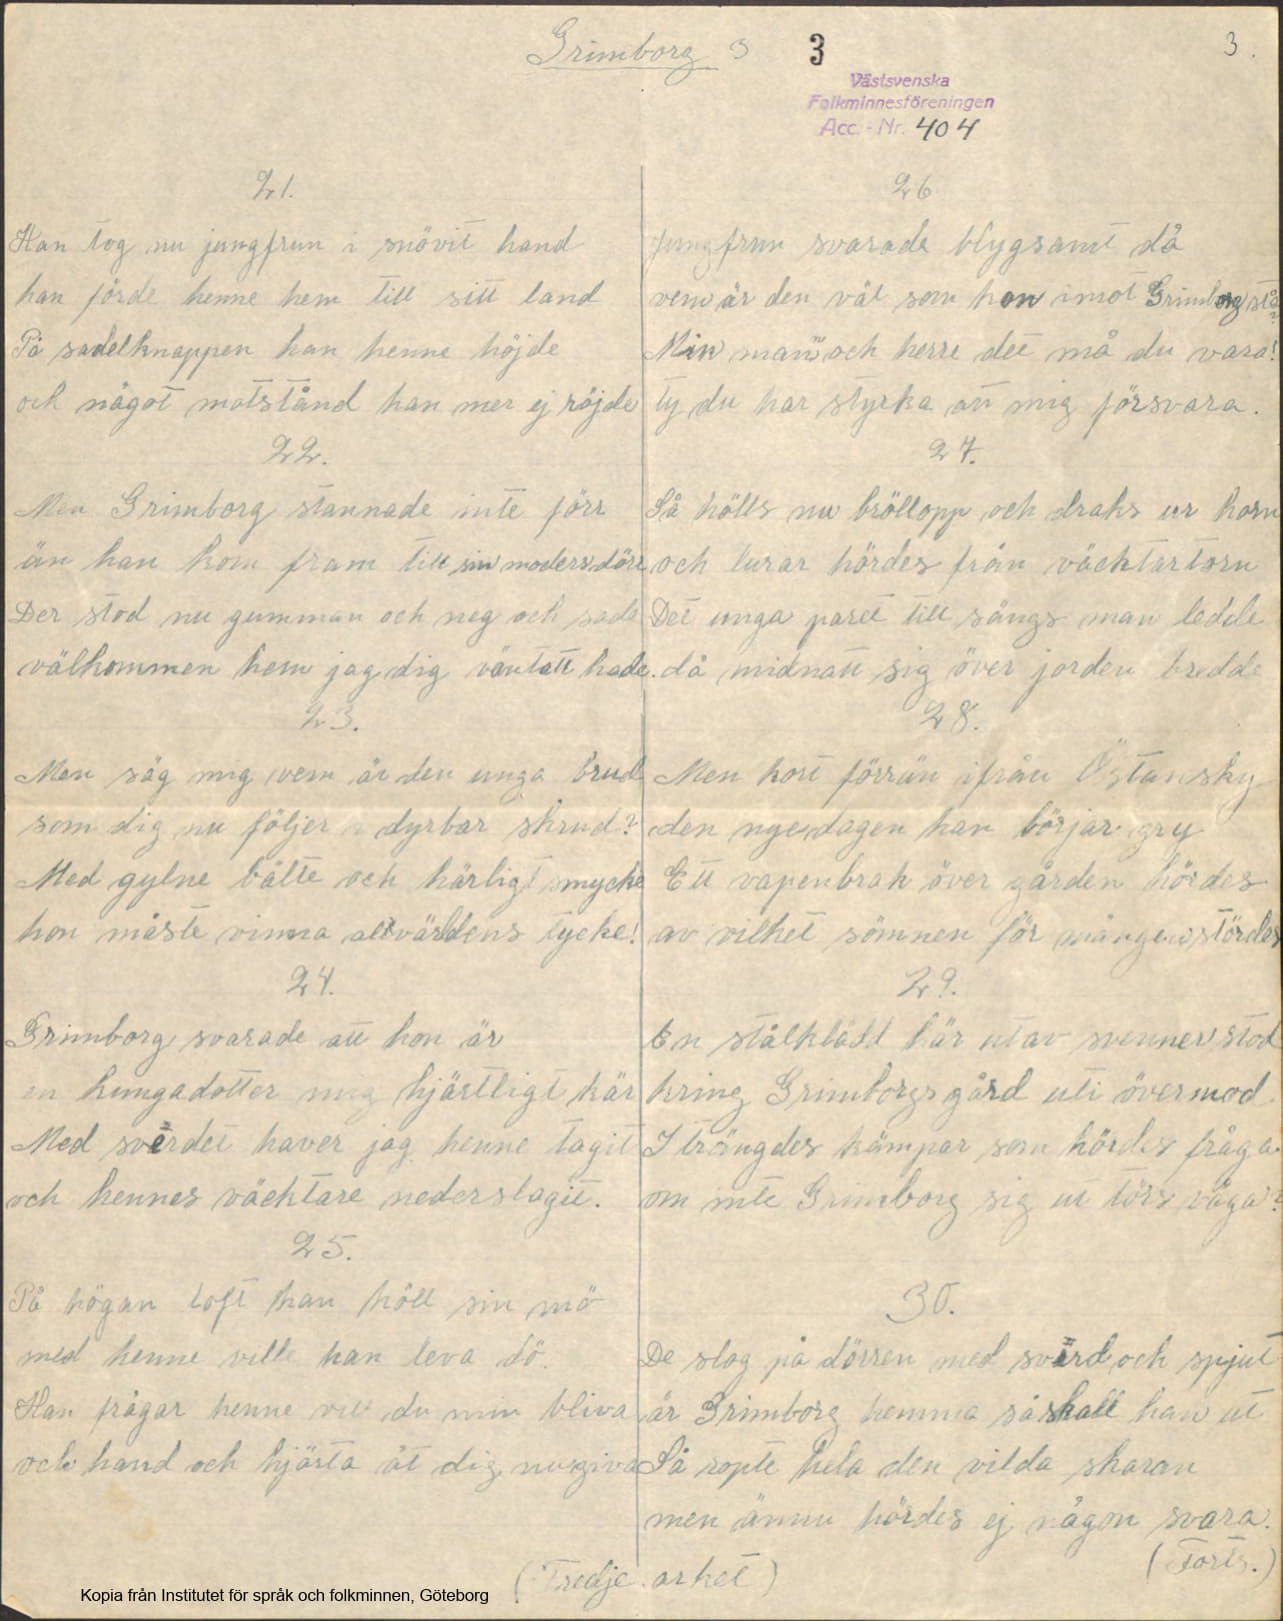 Grimborg 3
3
3.
Västsvenska
Folkminnesföreningen
Acc. - Nr. 404
21.
Han tog nu jungfrun i snövit hand
han förde henne hem till sitt land
På sadelknappen han henne höjde
och något motstånd han mer ej röjde
22.
Men Grimborg stannade inte förr
än han kom fram till sin moders dörr
Der stod nu gumman och neg och sade
välkommen hem jag dig väntatt hade.
23.
Men säg mig vem är den unga brud
som dig nu följer i dyrbar skrud?
Med gylne bälte och härligt smycke
hon måste vinna all världens tycke!
24.
Grimborg svarade att hon är
en kungadotter mig hjärtligt kär
Med svärdet haver jag henne tagit
och hennes väcktare nederslagit.
25.
På högan loft han höll sin mö
med henne ville han leva dö.
Han frågar henne vill du min bliva
och hand och hjärta åt dig nu giva
26
Jungfrun svarade blygsamt då
vem är den väl som kan imot Grimborg stå?
Min man och herre det må du vara!
ty du har styrka att mig försvara.
27.
Så hölls nu bröllopp och draks ur horn
och lurar hördes från väcktartorn
Det unga paret till sängs man ledde
då midnatt sig över jorden bredde
28.
Men kort förrän ifrån Östansky
den nye dagen han börjar gry
Ett vapenbrak över gården hördes
av vilket sömnen för mången stördes
29.
En stålklädd här utav svenner stod
kring Grimborgs gård uti övermod.
I trängdes kämpar som hördes fråga
om inte Grimborg sig ut törs våga?
30.
De slog på dörren med svärd och spjut
är Grimborg hemma så skall han ut
Så ropte hela den vilda skaran
men ännu hördes ej någon svara.
(Forts.)
(Tredje arket)
Kopia från Institutet för språk och folkminnen, Göteborg